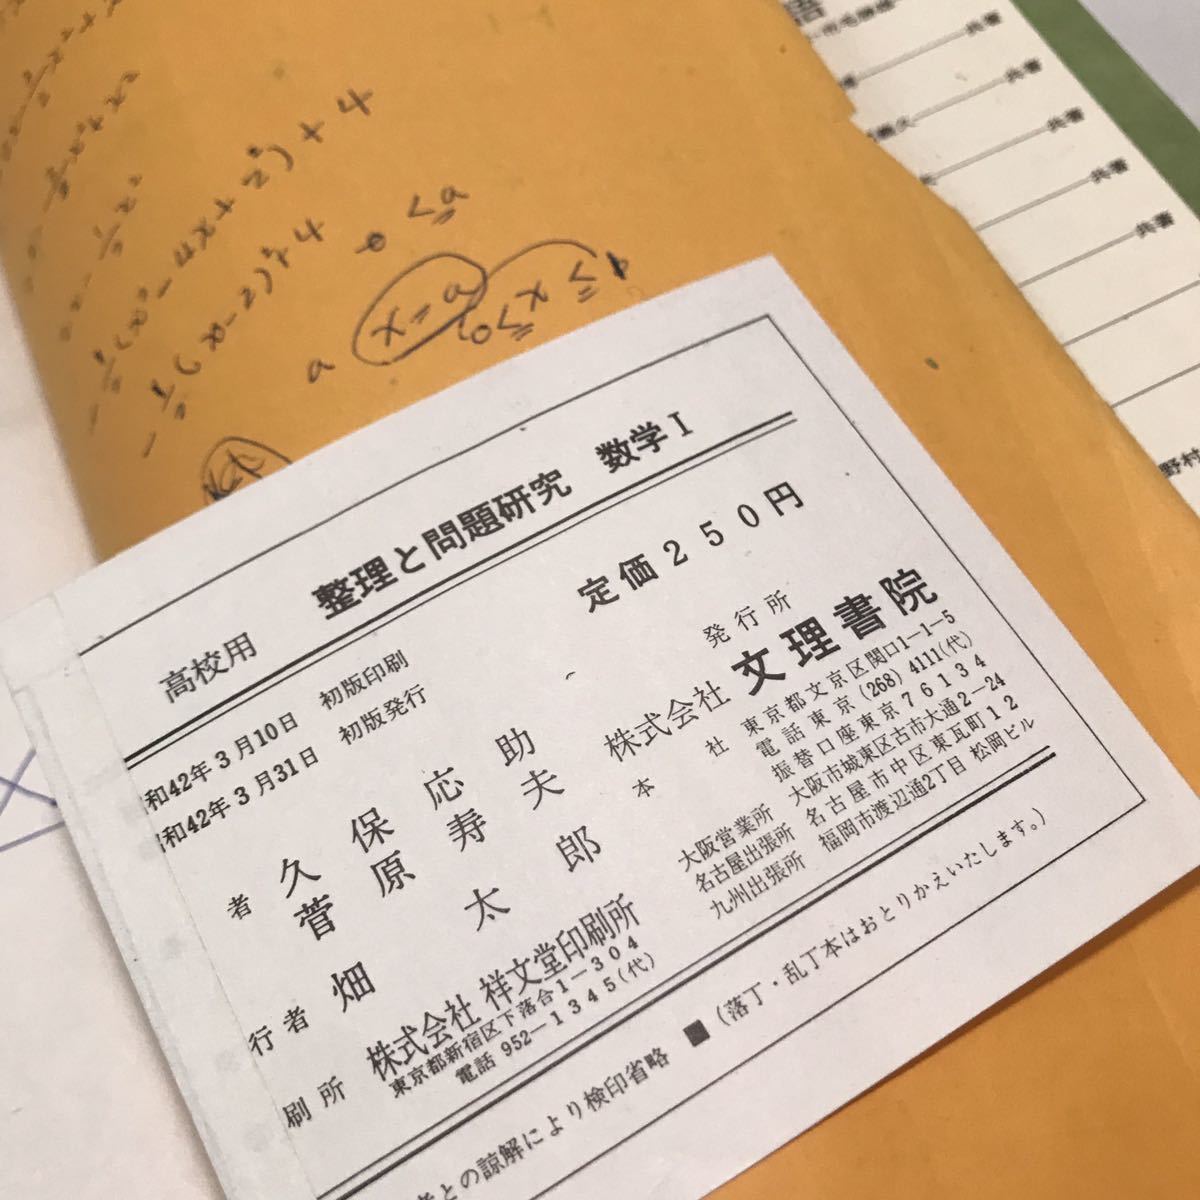 共著
共著
共著
共著
共著
野村
(x - 2)² + 4
x = a
高校用 整理と問題研究 数学Ⅰ
定価250円
和42年3月10日 初版印刷
和42年3月31日 初版発行
者 久保応助
菅原寿夫
行者 畑太郎
刷所 株式会社 祥文堂印刷所
東京都新宿区下落合1-304
電話 952-1345(代)
発行所
株式会社 文理書院
本社 東京都文京区関口1-1-5
電話東京(268)4111(代)
振替口座東京76134
大阪営業所 大阪市城東区古市大通2-24
名古屋出張所 名古屋市中区東瓦町12
九州出張所 福岡市渡辺通2丁目 松岡ビル
者との諒解により検印省略 ■ (落丁・乱丁本はおとりかえいたします。)